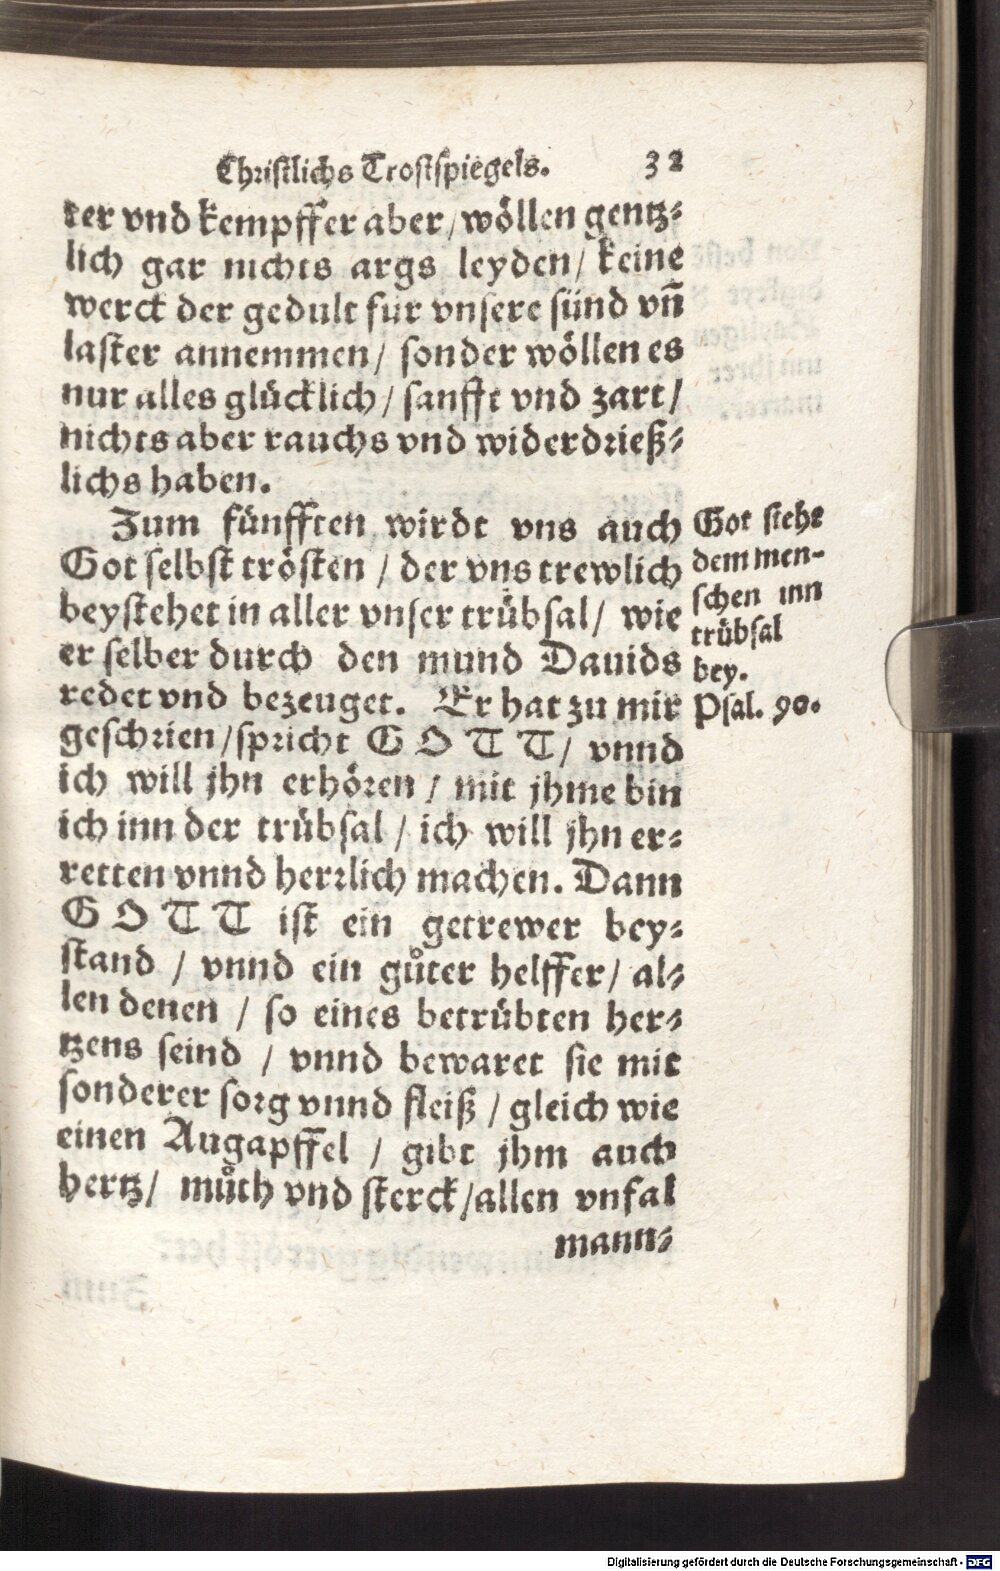 Christlichs Trostspiegels. 32
ter vnd kempffer aber/ wöllen gentz⸗
lich gar nichts args leyden/ keine
werck der gedult fur vnsere sünd vñ
laster annemmen/ sonder wöllen es
nur alles glücklich/ sanfft vnd zart/
nichts aber rauchs vnd widerdrieß⸗
lichs haben.
Zum fünfften wirdt vns auch
Got selbst trösten / der vns trewlich
beystehet in aller vnser trübsal/ wie
er selber durch den mund Dauids
redet vnd bezeuget. Er hat zu mir
geschrien/ spricht GOTT/ vnnd
ich will jhn erhören / mit jhme bin
ich inn der trübsal / ich will jhn er⸗
retten vnnd herrlich machen. Dann
GOTT ist ein getrewer bey⸗
stand / vnnd ein gůter helffer/ al⸗
len denen / so eines betrübten her⸗
tzens seind / vnnd bewaret sie mit
sonderer sorg vnnd fleiß / gleich wie
einen Augapffel / gibt jhm auch
hertz/ můth vnd sterck/ allen vnfal
mann⸗
Got stehe
dem men-
schen inn
trübsal
bey.
Psal. 90.
Digitalisierung gefördert durch die Deutsche Forschungsgemeinschaft - DFG